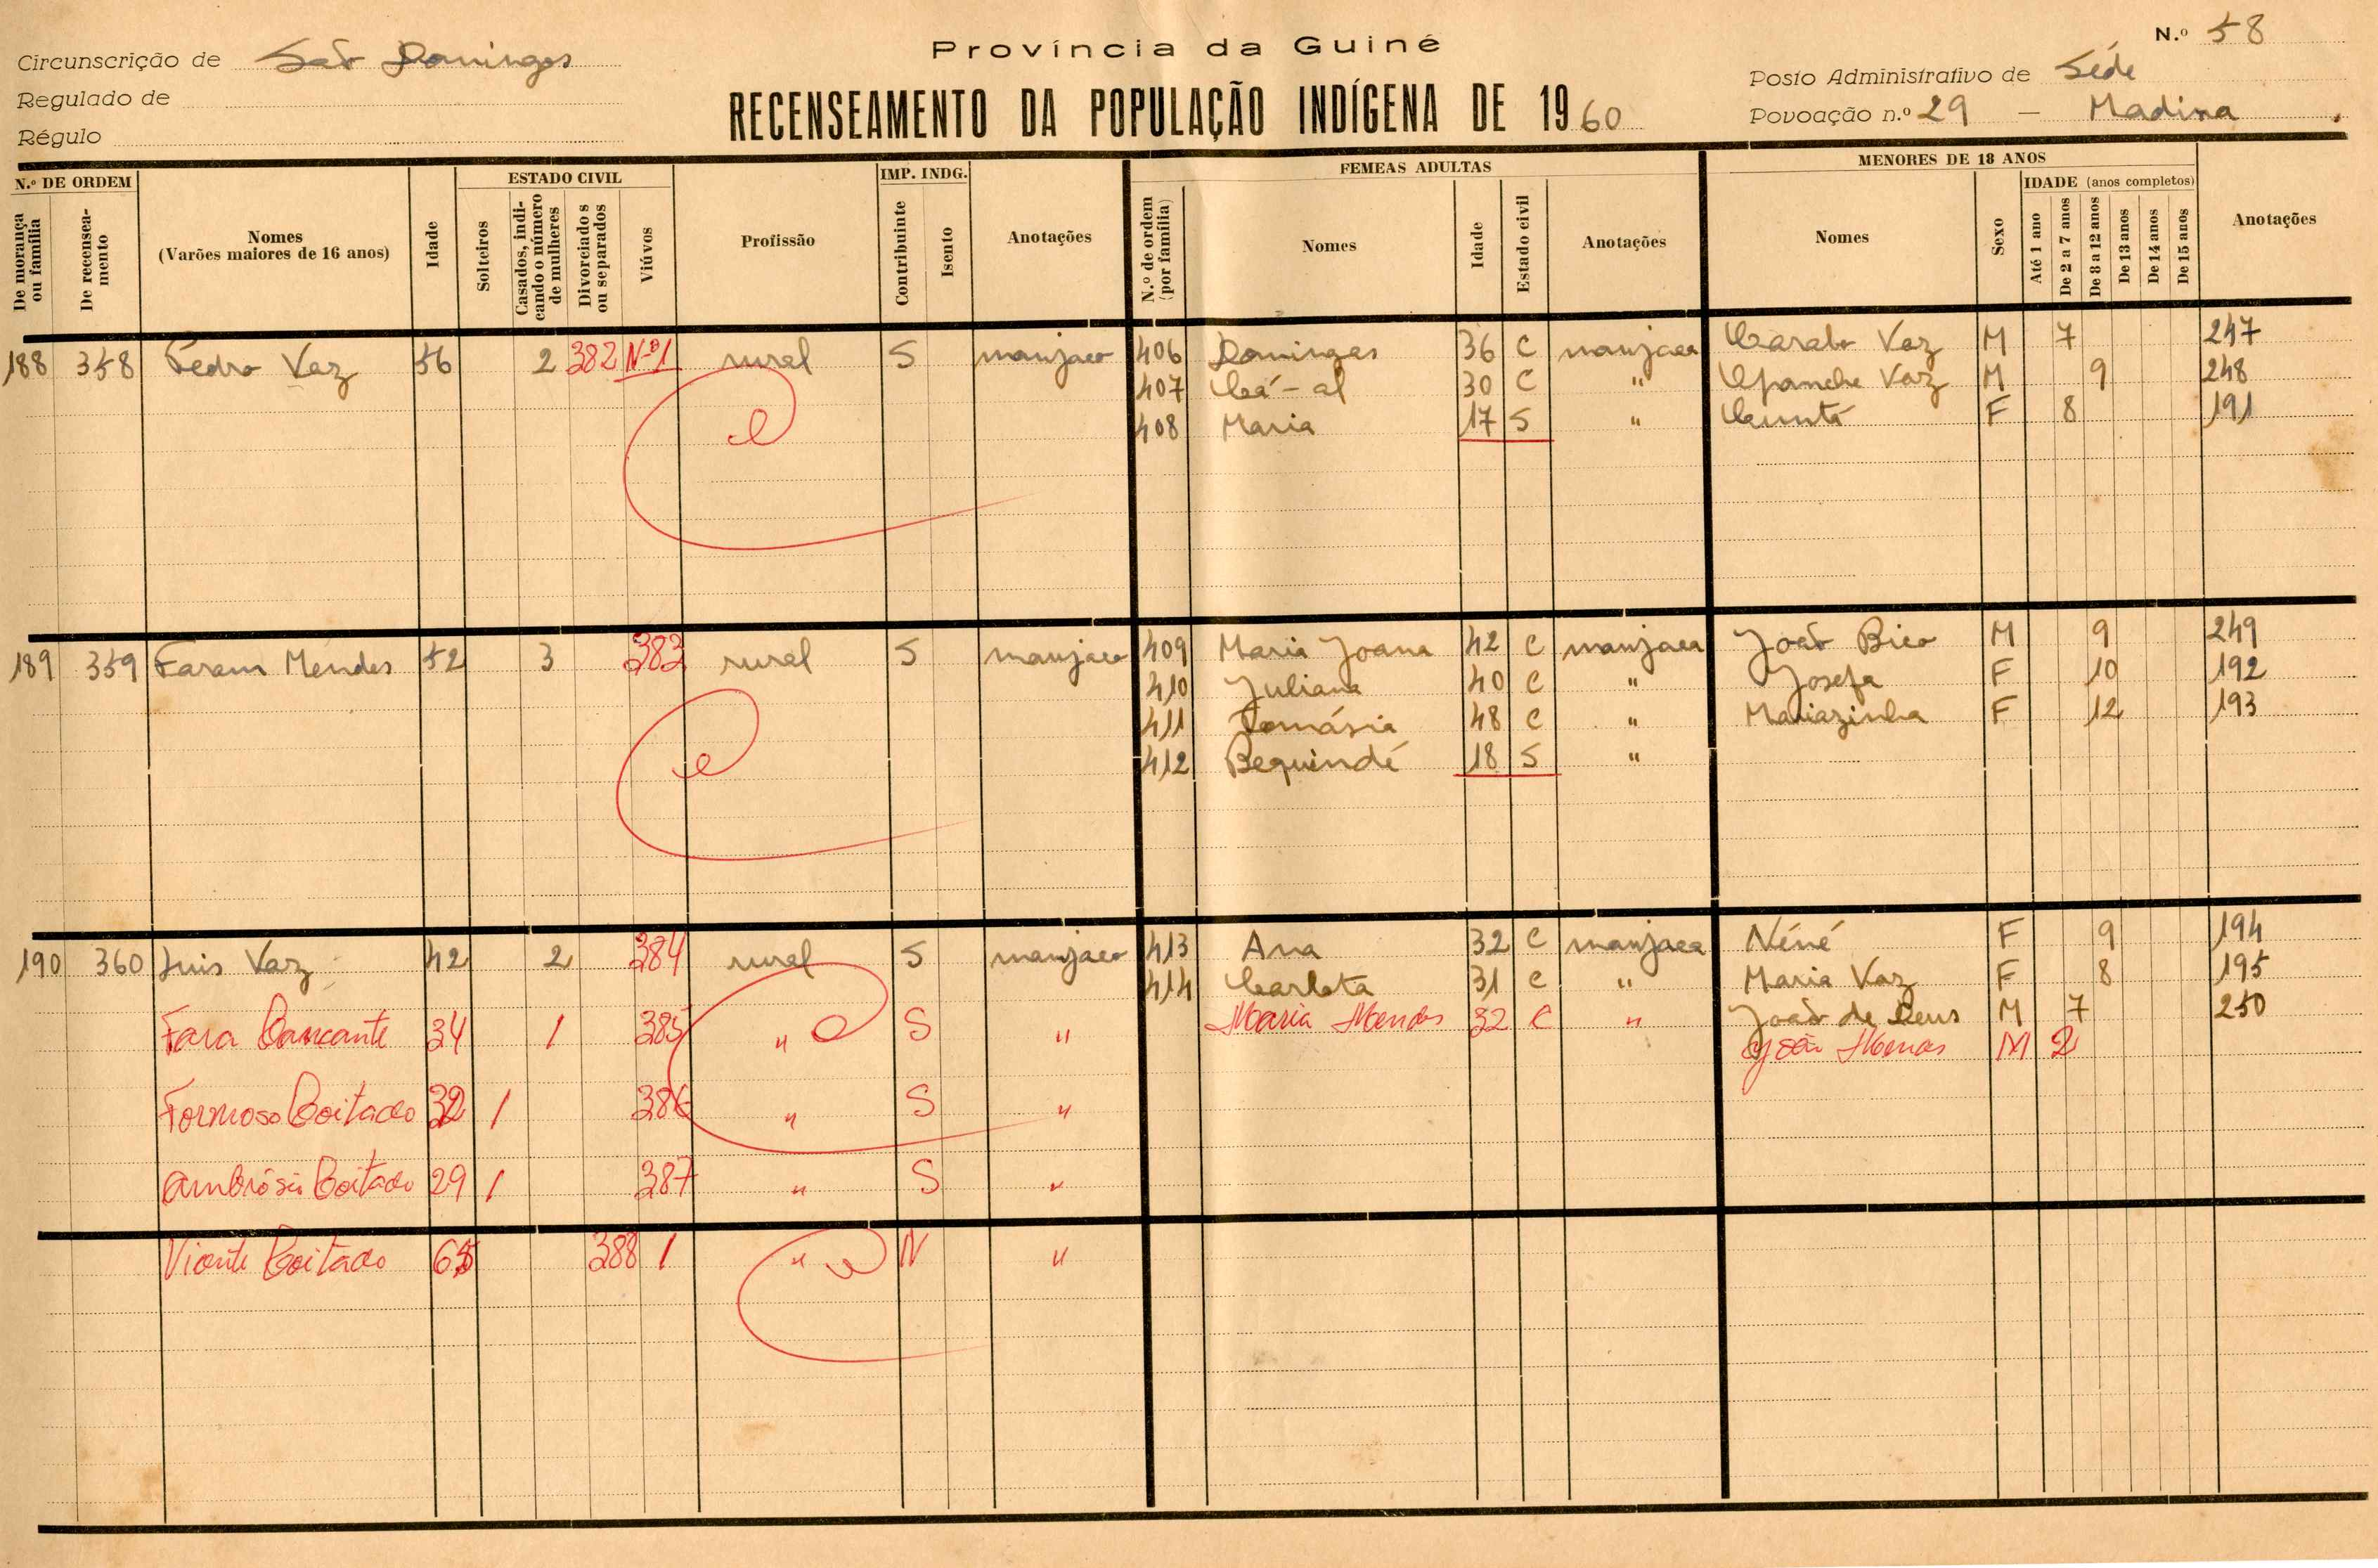 Província da Guiné
N.º 58
Circunscrição de São Domingos
Regulado de
Régulo
RECENSEAMENTO DA POPULAÇÃO INDÍGENA DE 1960
Posto Administrativo de Séde
Povoação n.º 29 — Madina
N.º DE ORDEM
De morança ou família
De recenseamento
Nomes
(Varões maiores de 16 anos)
Idade
ESTADO CIVIL
Solteiros
Casados, indicando o número de mulheres
Divorciados ou separados
Viúvos
Profissão
IMP. INDG.
Contribuinte
Isento
Anotações
FEMEAS ADULTAS
N.º de ordem (por família)
Nomes
Idade
Estado civil
Anotações
MENORES DE 18 ANOS
Nomes
Sexo
IDADE (anos completos)
Até 1 ano
De 2 a 7 anos
De 8 a 12 anos
De 13 anos
De 14 anos
De 15 anos
Anotações
188 358 Pedro Vaz 56 2 382 Nº1 rural S manjaco 406 Domingas 36 C manjaca Vaz M 7 247
407 Cá-al 30 C " Vaz M 9 248
408 Maria 17 S " F 8 191
189 359 Faram Mendes 52 3 383 rural S manjaco 409 Maria Joana 42 C manjaca João Bico M 9 249
410 Juliana 40 C " Josefa F 10 192
411 Tomásia 48 C " Mariazinha F 12 193
412 Bequindé 18 S "
190 360 Luis Vaz 42 2 384 rural S manjaco 413 Ana 32 C manjaca Néné F 9 194
414 Carlota 31 C " Maria Vaz F 8 195
Fara 34 1 385 " S " Maria Mendes 32 C " João de Deus M 7 250
João M 2
Formoso Coitado 32 1 386 " S "
Ambrósio Coitado 29 1 387 " S "
Vicente Coitado 65 388 1 " N "